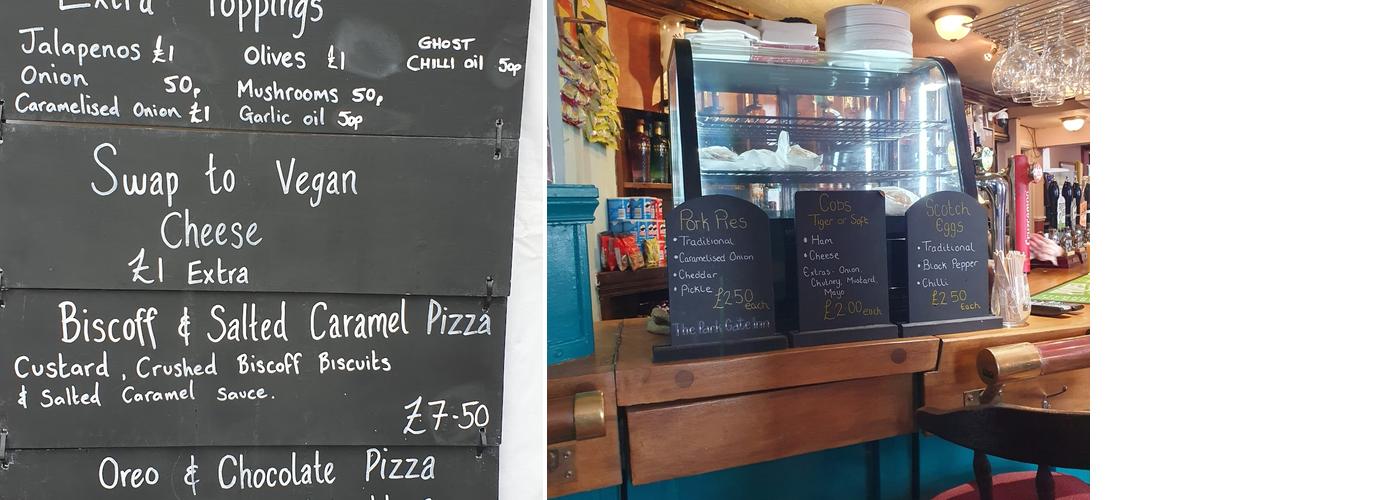 Extra Toppings
Jalapenos £1
Onion 50p
Caramelised Onion £1
Olives £1
Mushrooms 50p
Garlic oil 50p
GHOST
CHILLI oil 50p
Swap to Vegan
Cheese
£1 Extra
Biscoff & Salted Caramel Pizza
Custard, Crushed Biscoff Biscuits
& Salted Caramel Sauce.
£7-50
Oreo & Chocolate Pizza
Pork Pies
• Traditional
• Caramelised Onion
• Cheddar
• Pickle
£2.50
each
The Park Gate inn
Cobs
Tiger or Soft
• Ham
• Cheese
Extras - Onion,
Chutney, Mustard,
Mayo
£2.00 each
Scotch
Eggs
• Traditional
• Black Pepper
• Chilli
£2.50
Each